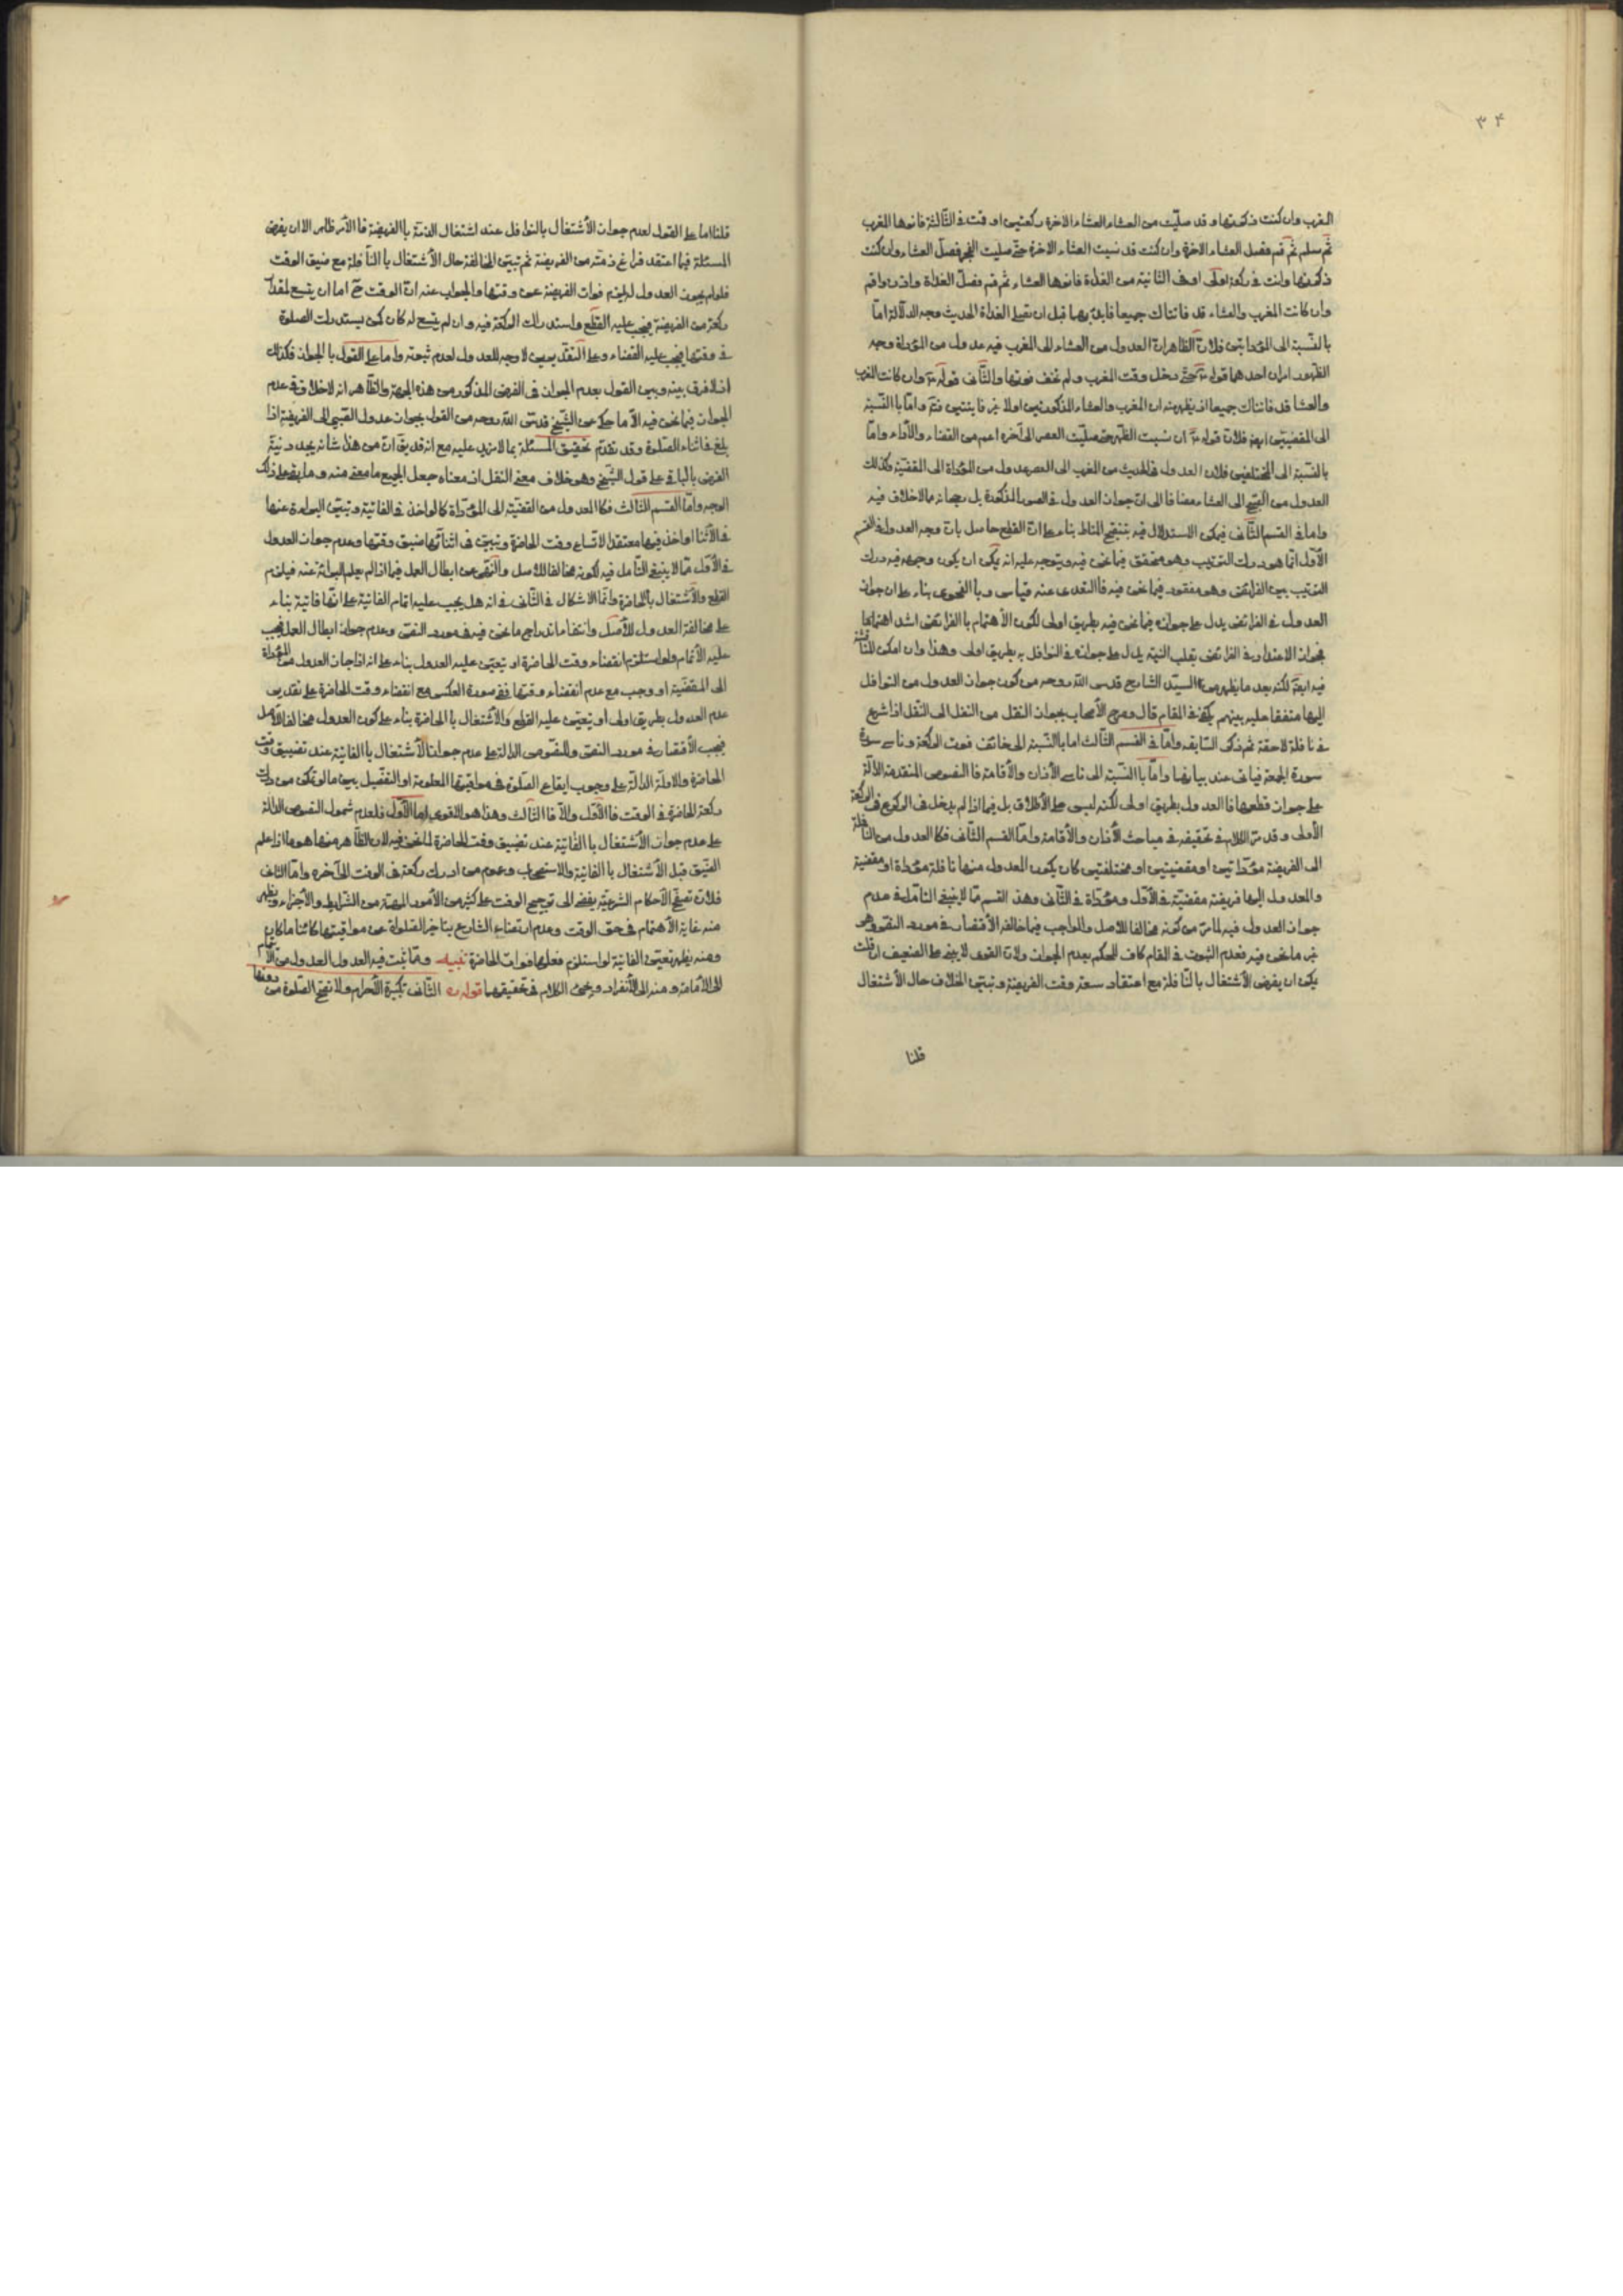 ۳۴
المغرب وان كنت ذكرتها وقد صليت من العشاء العشاء الاخرة ركعتين او قمت فى الثالثة فانوها المغرب
ثم سلم ثم قم فصل العشاء الاخرة وان كنت قد نسيت العشاء الاخرة حتى صليت الفجر فصل العشاء وان كنت
ذكرتها وانت فى ركعة اولى او فى الثانية من الغداة فانوها العشاء ثم قم فصل الغداة واذن واقم
وان كانت المغرب والعشاء قد فاتتاك جميعا فابدء بهما قبل ان تصلى الغداة الحديث وجه الدلالة اما
بالنسبة الى المؤداتين فلان الظاهر ان العدول من العشاء الى المغرب فيه عدول من المؤداة وجه
الظهور امران احدهما قوله حتى دخل وقت المغرب ولم تخف فوتها والثانى قوله وان كانت المغرب
والعشا قد فاتتاك جميعا اذ يظهر منه ان المغرب والعشاء المذكورتين اولا غير فايتتين فتم واما بالنسبة
الى المقضيتين ايضا فلان قوله ان نسيت الظهر حتى صليت العصر الى آخره اعم من القضاء والاداء واما
بالنسبة الى المختلفين فلان العدول فى الحديث من المغرب الى العصر عدول من المؤداة الى المقضية وكذلك
العدول من الصبح الى العشاء مضافا الى ان جواز العدول فى الصور المذكورة بل رجحانه مما لا خلاف فيه
واما فى القسم الثانى فيمكن الاستدلال فيه بتنقيح المناط بناء على ان القطع حاصل بان وجه العدول فى القسم
الاول انما هو درك الترتيب وهو متحقق فيما نحن فيه ويتوجه عليه انه يمكن ان يكون وجهه فيه درك
الترتيب بين الفرائض وهو مفقود فيما نحن فيه فالتعدى عنه قياس وبالفحوى بناء على ان جواز
العدول فى الفرائض يدل على جوازه فيما نحن فيه بطريق اولى لكون الاهتمام بالفرائض اشد اهتماما
فجواز الاعتداد فى الفرائض بقلب النية يدل على جوازه فى النوافل به بطريق اولى وهذا وان امكن المناقشة
فيه ايضا لكنه بعد ما يظهر من السيد الشارح قدس الله روحه من كون جواز العدول من النوافل
اليها متفقا عليه بينهم يكفى فى المقام قال وصرح الاصحاب بجواز النقل من النفل الى النفل اذا شرع
فى نافلة لاحقة ثم ذكر السابقه واما فى القسم الثالث اما بالنسبة الى خائف فوت الركعة وناسى سورة
سورة الجمعة فياتى عند بيانها واما بالنسبة الى ناسى الاذان والاقامة فالنصوص المتقدمة الدالة
على جواز قطعها فالعدول بطريق اولى لكنه ليس على الاطلاق بل فيما اذا لم يدخل فى الركوع فى الركعة
الاولى وقد مر الكلام فى تحقيقه فى مباحث الاذان والاقامة واما القسم الثانى فكالعدول من النافلة
الى الفريضة مؤداتين او مقضيتين او مختلفتين كان يكون المعدول منها نافلة مؤداة او مقضية
والمعدول اليها فريضة مقضية فى الاول ومؤداة فى الثانى وهذ القسم مما لا ينبغى التامل فى عدم
جواز العدول فيه لما مر من كونه مخالفا للاصل والواجب فيما خالفه الاقتصار فى مورد النص وهو
غير ما نحن فيه فعدم الثبوت فى المقام كاف للحكم بعدم الجواز ولان القوى لا يبنى على الضعيف ان قلت
يمكن ان يفرض الاشتغال بالنافلة مع اعتقاد سعة وقت الفريضة وتبين الخلاف حال الاشتغال
قلنا
قلنا اما على القول لعدم جواز الاشتغال بالنوافل عند اشتغال الذمة بالفريضة فالامر ظاهر الا ان يفرض
المسئلة فيما اعتقد فراغ ذمته من الفريضة ثم تبين المخالفة حال الاشتغال بالنافلة مع ضيق الوقت
فلو لم يجوز العدول لم يلزم فوات الفريضة عن وقتها والجواب عنه ان الوقت ح اما ان يتسع لمقدار
ركعة من الفريضة فيجب عليه القطع واستدراك الركعة فيه وان لم يتسع له كان كمن يستدرك الصلوة
فى وقتها فيجب عليه القضاء وعلى التقديرين لا وجه للعدول لعدم ثبوته واما على القول بالجواز فكذلك
اذ لا فرق بينه وبين القول بعدم الجواز فى الفرض المذكور من هذه الجهة والظاهر انه لا خلاف فى عدم
الجواز فيما نحن فيه الا ما حكى عن الشيخ قدس الله روحه من القول بجواز عدول الصبى الى الفريضة اذا
بلغ فى اثناء الصلوة وقد تقدم تحقيق المسئلة بما لا مزيد عليه مع انه قد يق ان من هذا شانه يجدد نية
الفرض بالباقى على قول الشيخ وهو خلاف معنى النقل اذ معناه جعل الجميع ما مضى منه وما بقى على ذلك
الوجه واما القسم الثالث فكالعدول من المقضية الى المؤداة كالواخذ فى الفائتة وتبين البراءة عنها
فى الاثنا او اخذ فيها معتقدا لاتساع وقت الحاضرة وتبين فى اثنائها ضيق وقتها وعدم جواز العدول
فى الاول مما لا ينبغى التامل فيه لكونه مخالفا للاصل والنهى عن ابطال العمل فيما اذا لم يعلم البرائة عنه فيلزم
القطع والاشتغال بالحاضرة وانما الاشكال فى الثانى فى انه هل يجب عليه اتمام الفائتة على انها فائتة بناء
على مخالفة العدول للاصل وانتفاء اندراج ما نحن فيه فى مورد النص وعدم جواز ابطال العمل فيجب
عليه الاتمام ولو استلزم انقضاء وقت الحاضرة او يتعين عليه العدول بناء على انه اذا جاز العدول من المؤداة
الى المقضية او وجب مع عدم انقضاء وقتها ففى صورة العكس مع انقضاء وقت الحاضرة على تقدير
عدم العدول بطريق اولى او يتعين عليه القطع والاشتغال بالحاضرة بناء على كون العدول مخالفا للاصل
فيجب الاقتصار فى مورد النص وللنصوص الدالة على عدم جواز الاشتغال بالفائتة عند تضييق وقت
الحاضرة والادلة الدالة على وجوب ايقاع الصلوة فى مواقيتها المعلومة او التفصيل بين ما لو تمكن من درك
ركعة الحاضرة فى الوقت فالاول والا فالثالث وهذا هو الاقوى اما الاول فلعدم شمول النصوص الدالة
على عدم جواز الاشتغال بالفائتة عند تضييق وقت الحاضرة لما نحن فيه لان الظاهر منها هو ما اذا علم
الضيق قبل الاشتغال بالفائتة والاستصحاب وعموم من ادرك ركعة فى الوقت الى آخره واما الثانى
فلان تصفح الاحكام الشرعية يفضى الى ترجيح الوقت على كثير من الامور المهمة من الشرايط والاجزاء ويظهر
منه غاية الاهتمام فى حق الوقت وعدم ارتضاء الشارع بتاخير الصلوة عن مواقيتها كائنا ما كان
ومنه يظهر تعيين الفائتة لو استلزم فعلها فوات الحاضرة تنبيه ومما ثبت فيه العدول العدول من الاتمام
الى الامامة ومنه الى الانفراد ويجىء الكلام فى تحقيقهما قوله الثانى تكبيرة الاحرام ولا تصح الصلوة من دونها